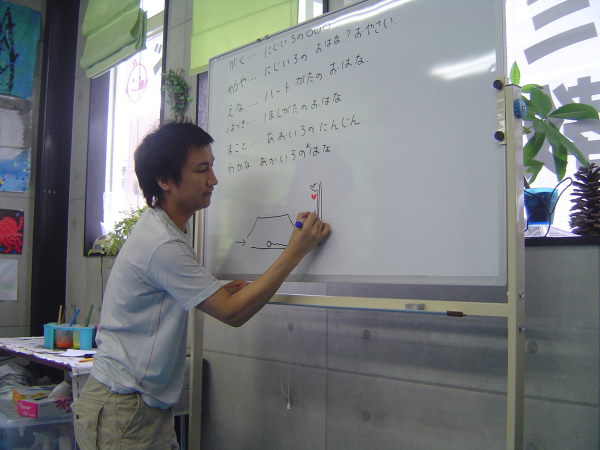 がく…にじいろの〇〇〇〇
ゆうや…にじいろの おはな?おやさい.
えな…. ハート がたの おはな.
はづき… ほしがたのおはな
まこと… あおいろの にんじん
わかな あかいろのおはな